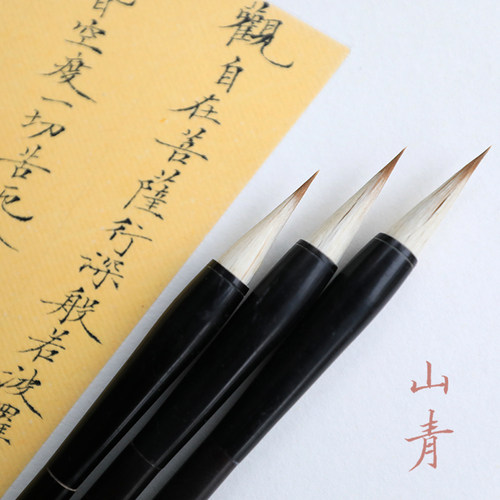 觀自在菩薩行深般若波羅
皆空度一切苦厄
山青